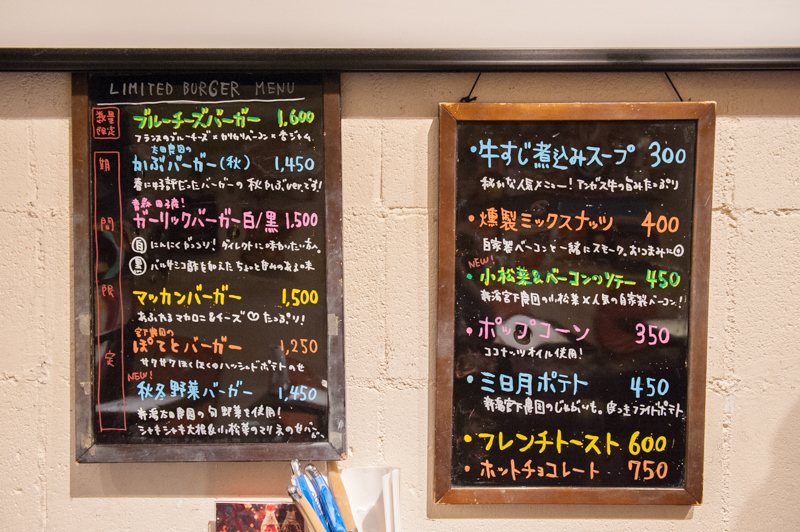 LIMITED BURGER MENU
数量
限定
ブルーチーズバーガー 1,600
フランスのブルーチーズ×かりかりベーコン×
太田農園の
かぶバーガー(秋) 1,450
春に好評だったバーガーの秋かぶver.です!
青森 田子産!
ガーリックバーガー白/黒 1,500
白 にんにくがっつり!ダイレクトに味わいたい方へ
黒 バルサミコ酢を加えた ちょっと甘みのある味
マッカンバーガー 1,500
あふれるマカロニ&チーズ♡たっぷり!
宮下農園の
ぽてとバーガー 1,250
サクサクほくほくのハッシュドポテトのせ
NEW!
秋冬野菜バーガー 1,450
新潟太田農園の旬野菜を使用!
シャキシャキ大根&小松菜のマリネのせバーガー
期
間
限
定
・牛すじ煮込みスープ 300
秘かな人気メニュー!アンガス牛の旨みたっぷり
・燻製ミックスナッツ 400
自家製ベーコンと一緒にスモーク。おつまみに◎
NEW!
・小松菜&ベーコンのソテー 450
新潟宮下農園の小松菜×人気の自家製ベーコン!
・ポップコーン 350
ココナッツオイル使用!
・三日月ポテト 450
新潟宮下農園のじゃがいも。皮つきフライドポテト
・フレンチトースト 600
・ホットチョコレート 750